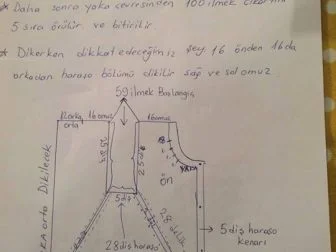 * Daha sonra yaka çevresinden 100 ilmek çıkarılır
5 sıra örülür ve bitirilir
* Dikerken dikkat edeceğimiz şey 16 önden 16 da
arkadan haraşo bölümü dikilir sağ ve sol omuz
59 ilmek Başlangıç
orta
16 omuz
16 omuz
25 diş
5 diş
ön
28 diş haraşo
5 diş haraşo
kenarı
orta Dikilecek